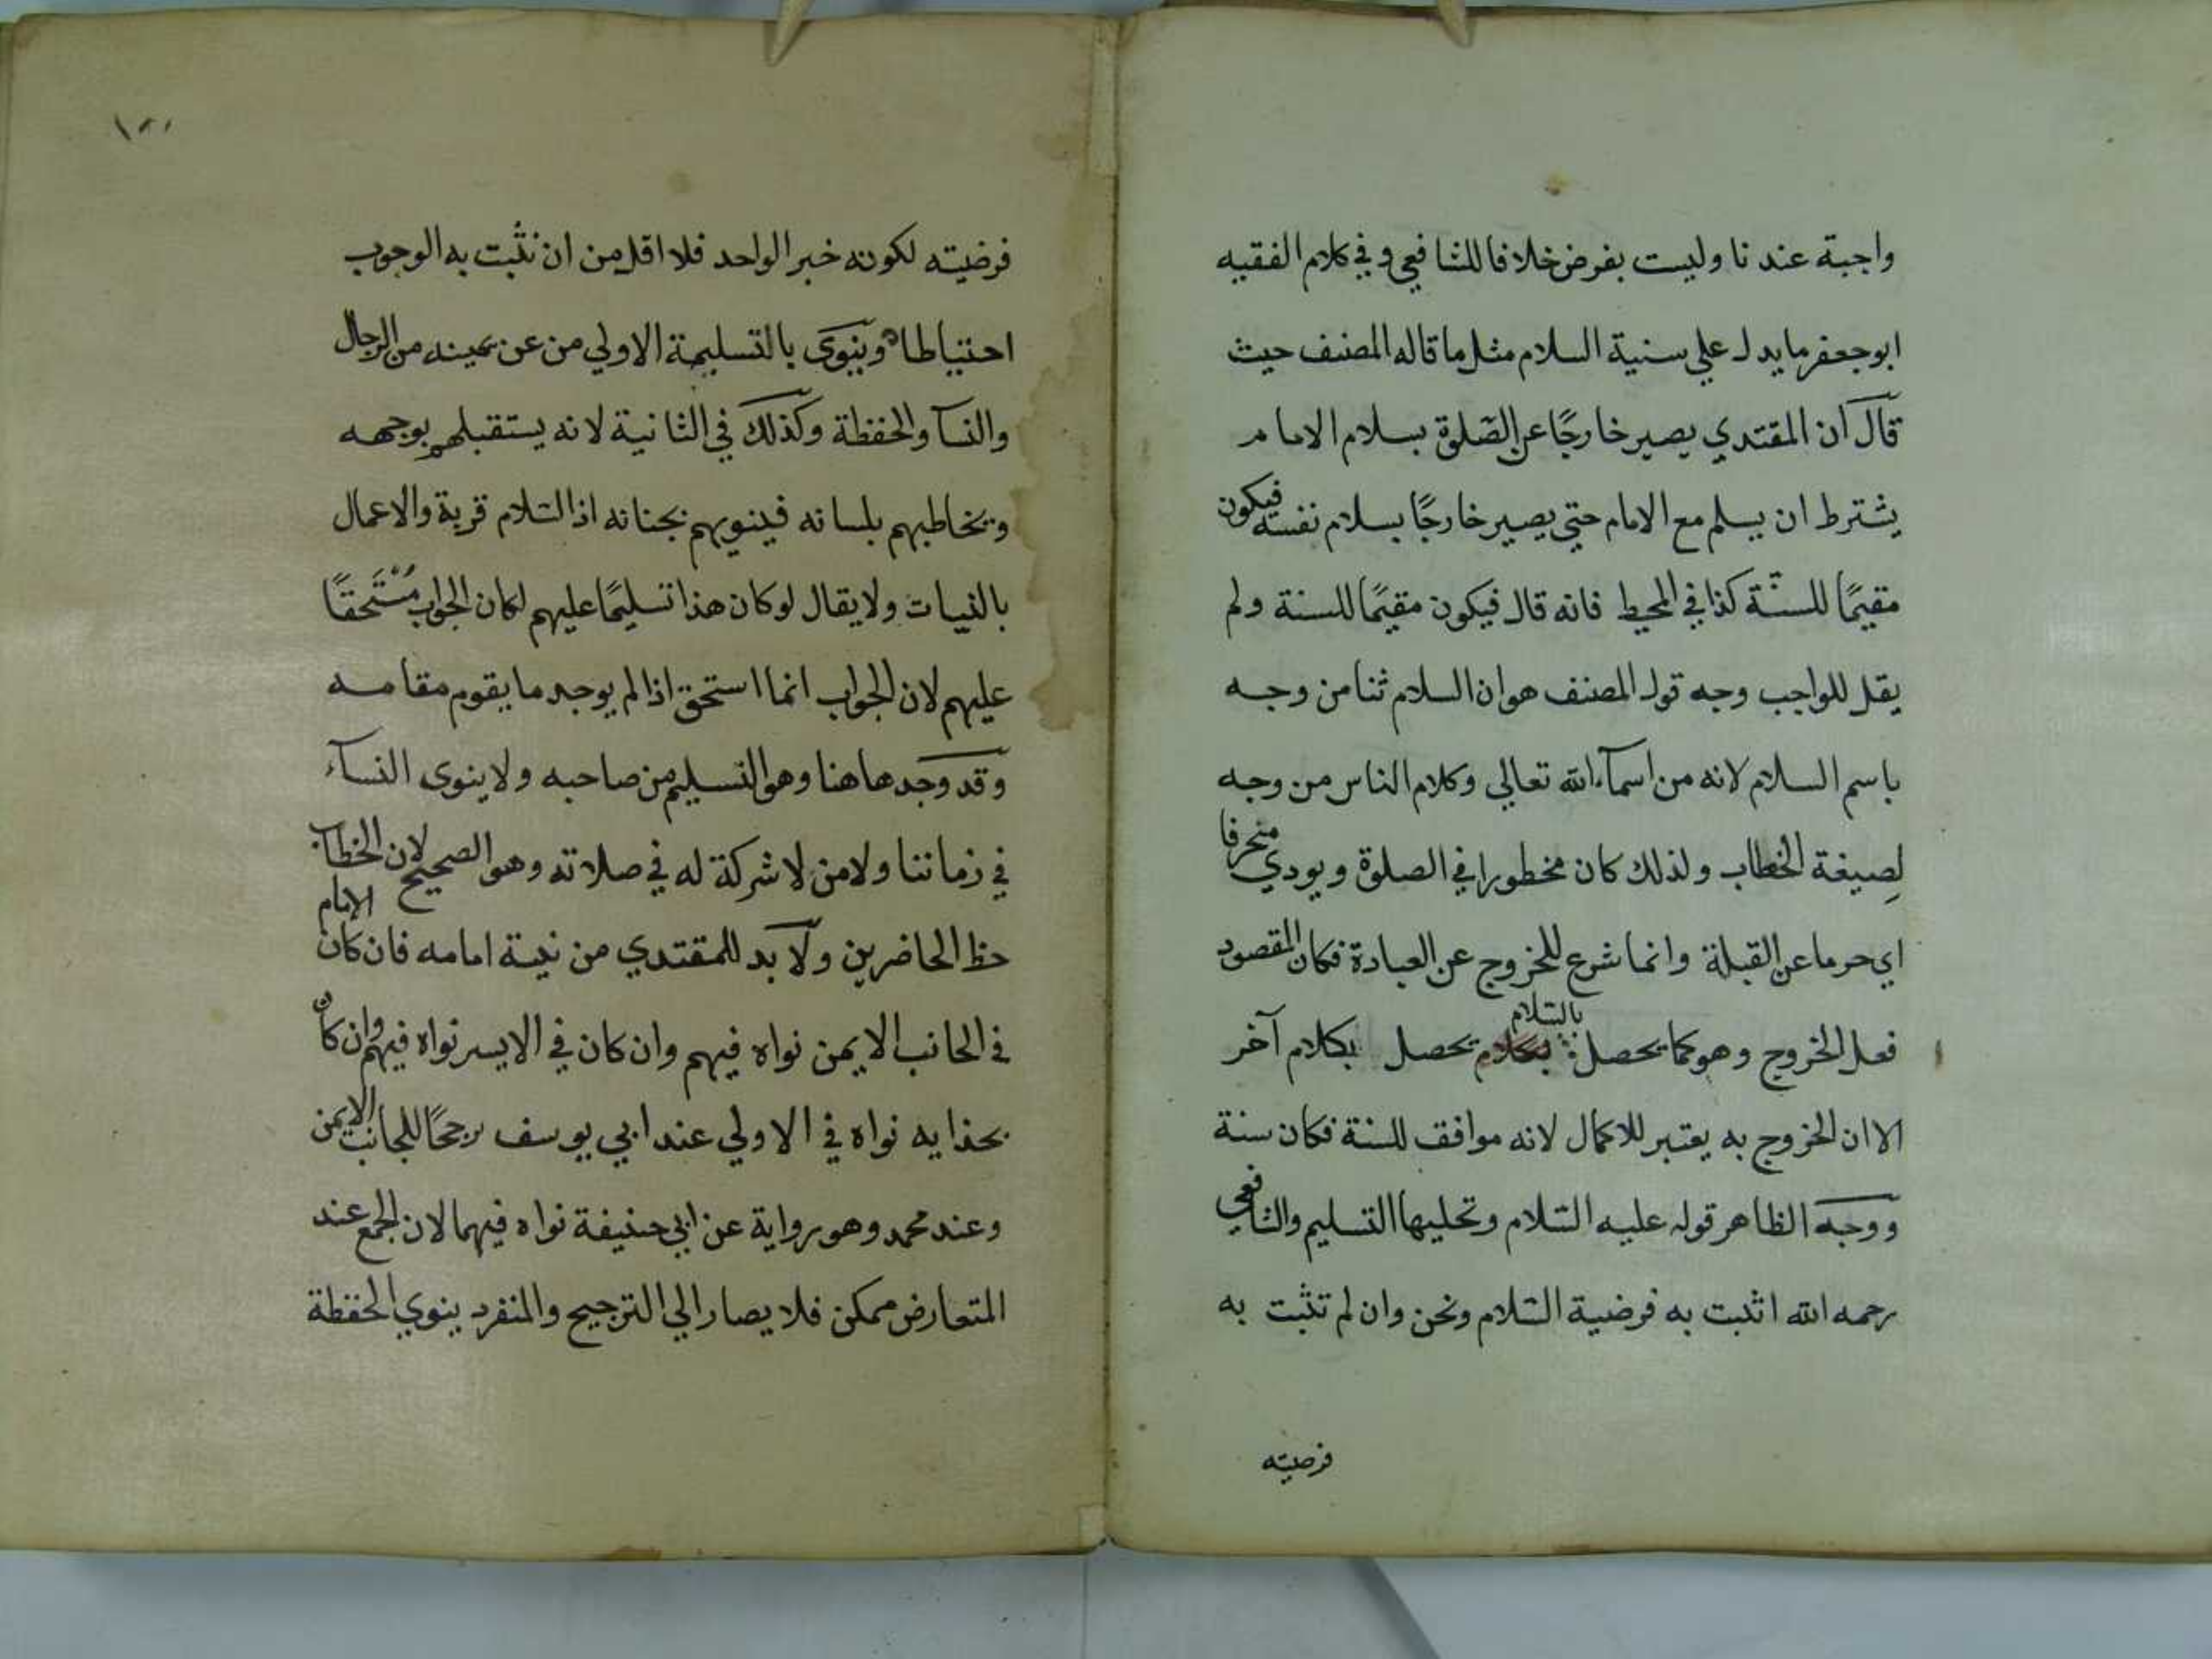 واجبة عندنا وليست بفرض خلافا للشافعي وفي كلام الفقيه
ابو جعفر ما يدل علي سنية السلام مثل ما قاله المصنف حيث
قال ان المقتدي يصير خارجًا عن الصّلوة بسلام الامام
يشترط ان يسلم مع الامام حتي يصير خارجًا بسلام نفسه فيكون
مقيمًا للسنّة كذا في المحيط فانه قال فيكون مقيمًا للسنة ولم
يقل للواجب وجه قول المصنف هو ان السلام ثنا من وجه
باسم السلام لانه من اسمآء الله تعالي وكلام الناس من وجه
لِصيغة الخطاب ولذلك كان مخطورا في الصلوة ويودي منحرفا
اي حرما عن القبلة وانما شرع للخروج عن العبادة فكان المقصود
فعل الخروج وهو كما يحصل بالسّلام يحصل بكلام آخر
الا ان الخروج به يعتبر للاكمال لانه موافق للسنة فكان سنة
ووجه الظاهر قوله عليه السّلام وتحليها التسليم والشافعي
رحمه الله اثبت به فرضية السّلام ونحن وان لم تثبت به
فرضيته
فرضيته لكونه خبر الواحد فلا اقل من ان نثبت به الوجوب
احتياطا وينوي بالتسليمة الاولي من عن يمينه من الرجال
والنسآ والحفظة وكذلك في الثانية لانه يستقبلهم بوجهه
ويخاطبهم بلسانه فينويهم بجنانه اذ السّلام قربة والاعمال
بالنيات ولا يقال لو كان هذا تسليمًا عليهم لكان الجواب مُسْتَحقًا
عليهم لان الجواب انما استحق اذا لم يوجد ما يقوم مقامه
وقد وجد هاهنا وهو التسليم من صاحبه ولا ينوي النسآء
في زماننا ولا من لا شركة له في صلاته وهو الصحيح لان الخطاب
حظ الحاضرين ولا بد للمقتدي من نية امامه فان كان الامام
في الجانب الايمن نواه فيهم وان كان في الايسر نواه فيهم وان كان
بحذايه نواه في الاولي عند ابي يوسف برجحًا للجانب الايمن
وعند محمد وهو برواية عن ابي حنيفة نواه فيهما لان الجمع عند
المتعارض ممكن فلا يصار الي الترجيح والمنفرد ينوي الحفظة